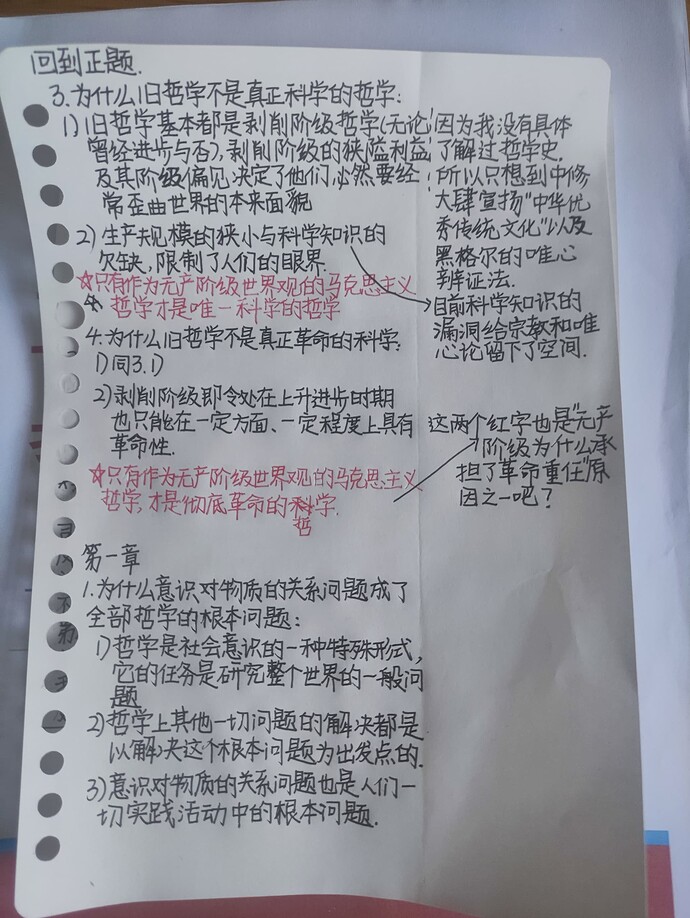 回到正题.
3.为什么旧哲学不是真正科学的哲学:
1)旧哲学基本都是剥削阶级哲学(无论
曾经进步与否),剥削阶级的狭隘利益
及其阶级偏见决定了他们必然要经
常歪曲世界的本来面貌
2)生产规模的狭小与科学知识的
欠缺,限制了人们的眼界.
☆只有作为无产阶级世界观的马克思主义
哲学才是唯一科学的哲学
4.为什么旧哲学不是真正革命的科学:
1)同3.1)
2)剥削阶级即令处在上升进步时期
也只能在一定方面、一定程度上具有
革命性.
☆只有作为无产阶级世界观的马克思主义
哲学,才是彻底革命的科学.
哲
第一章
1.为什么意识对物质的关系问题成了
全部哲学的根本问题:
1)哲学是社会意识的一种特殊形式,
它的任务是研究整个世界的一般问
题
2)哲学上其他一切问题的解决都是
以解决这个根本问题为出发点的.
3)意识对物质的关系问题也是人们一
切实践活动中的根本问题.
因为我没有具体
了解过哲学史.
所以只想到中修
大肆宣扬"中华优
秀传统文化"以及
黑格尔的唯心
辨证法.
目前科学知识的
漏洞给宗教和唯
心论留下了空间.
这两个红字也是"无产
阶级为什么承
担了革命重任"原
因之一吧?